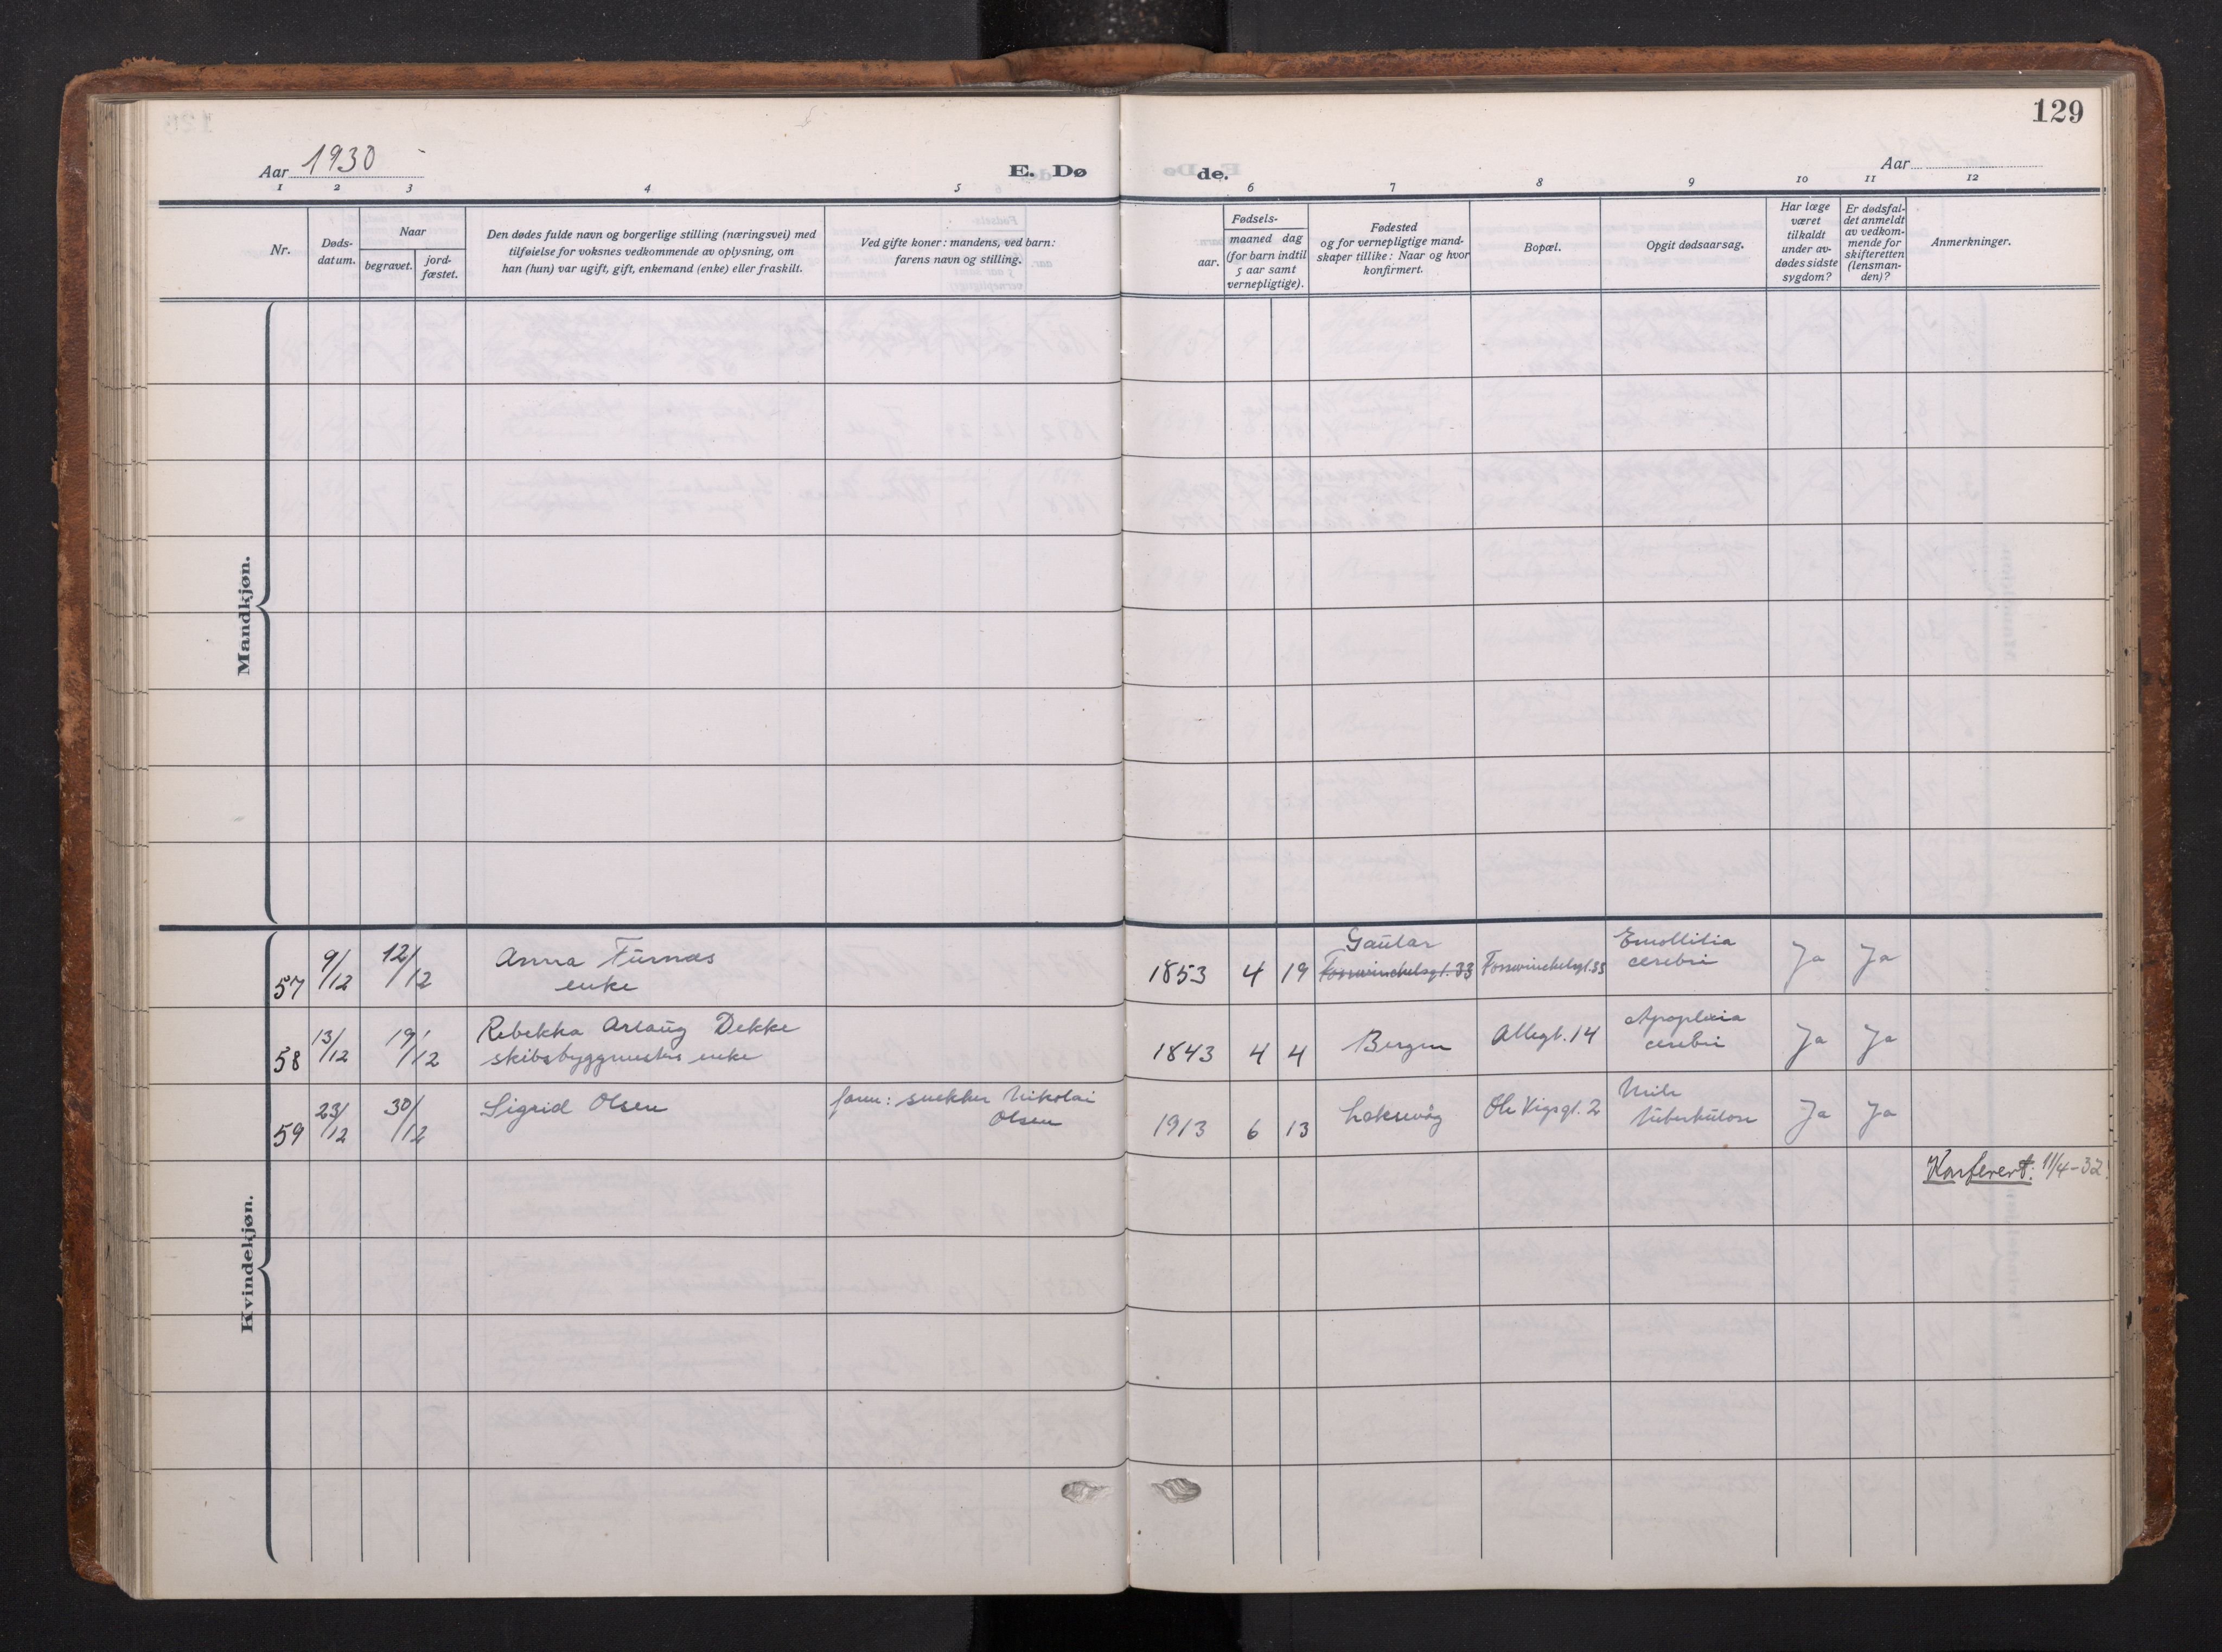 129
Aar 1930
E. Dø de.
Aar
1 2 3 4 5 6 7 8 9 10 11 12
Nr.
Døds-
datum.
Naar
begravet.
jord-
fæstet.
Den dødes fulde navn og borgerlige stilling (næringsvei) med
tilføielse for voksnes vedkommende av oplysning, om
han (hun) var ugift, gift, enkemand (enke) eller fraskilt.
Ved gifte koner: mandens, ved barn:
farens navn og stilling.
Fødsels-
aar.
maaned dag
(for barn indtil
5 aar samt
vernepligtige).
Fødested
og for vernepligtige mand-
skaper tillike: Naar og hvor
konfirmert.
Bopæl.
Opgit dødsaarsag.
Har læge
været
tilkaldt
under av-
dødes sidste
sygdom?
Er dødsfal-
det anmeldt
av vedkom-
mende for
skifteretten
(lensman-
den)?
Anmerkninger.
Mandkjøn.
Kvindekjøn.
57 9/12 12/12 Anna Furnas
enke
1853 4 19 Gaular
Fosswinckelsgt. 33 Fosswinckelsgt. 33 Emollitia
cerebri Ja Ja
58 13/12 19/12 Rebekka Aslaug Dekke
skibsbyggmesters enke
1843 4 4 Bergen Allegt. 14 Apoplexia
cerebri Ja Ja
59 23/12 30/12 Sigrid Olsen
faren: snekker Nikolai
Olsen
1913 6 13 Laksevåg Ole Vigsgt. 2
tuberkulose Ja Ja
Konferert: 11/4-32.